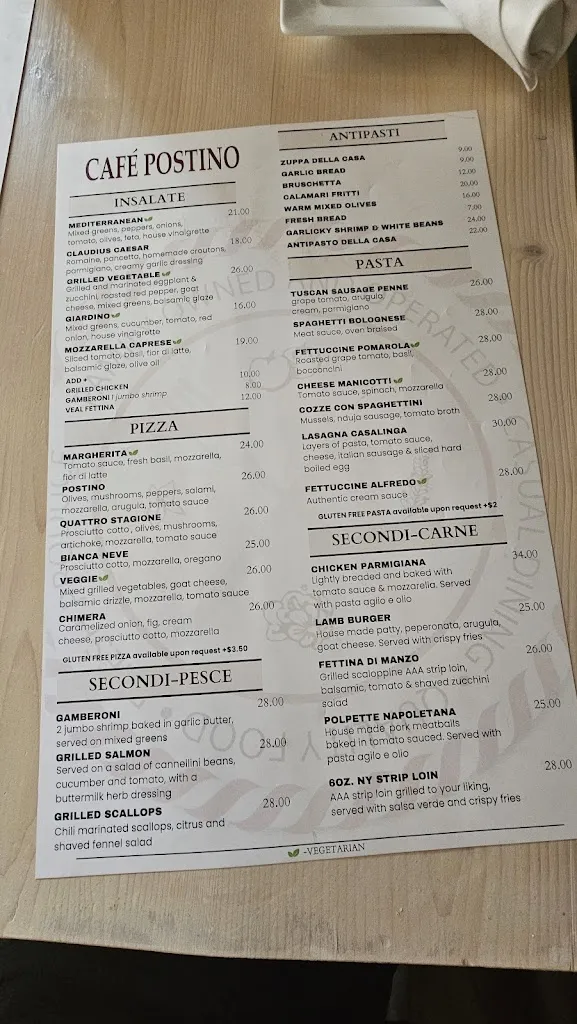 CAFÉ POSTINO
INSALATE
MEDITERRANEAN 21.00
Mixed greens, peppers, onions,
tomato, olives, feta, house vinaigrette
CLAUDIUS CAESAR 18.00
Romaine, pancetta, homemade croutons,
parmigiano, creamy garlic dressing
GRILLED VEGETABLE 26.00
Grilled and marinated eggplant &
zucchini, roasted red pepper, goat
cheese, mixed greens, balsamic glaze
GIARDINO 16.00
Mixed greens, cucumber, tomato, red
onion, house vinaigrette
MOZZARELLA CAPRESE 19.00
Sliced tomato, basil, fior di latte,
balsamic glaze, olive oil
ADD •
GRILLED CHICKEN 10.00
GAMBERONI 1 jumbo shrimp 8.00
VEAL FETTINA 12.00
PIZZA
MARGHERITA 24.00
Tomato sauce, fresh basil, mozzarella,
fior di latte
POSTINO 26.00
Olives, mushrooms, peppers, salami,
mozzarella, arugula, tomato sauce
QUATTRO STAGIONE 26.00
Prosciutto cotto, olives, mushrooms,
artichoke, mozzarella, tomato sauce
BIANCA NEVE 25.00
Prosciutto cotto, mozzarella, oregano
VEGGIE 26.00
Mixed grilled vegetables, goat cheese,
balsamic drizzle, mozzarella, tomato sauce
CHIMERA 26.00
Caramelized onion, fig, cream
cheese, prosciutto cotto, mozzarella
GLUTEN FREE PIZZA available upon request +$3.50
SECONDI-PESCE
GAMBERONI 28.00
2 jumbo shrimp baked in garlic butter,
served on mixed greens
GRILLED SALMON 28.00
Served on a salad of cannellini beans,
cucumber and tomato, with a
buttermilk herb dressing
GRILLED SCALLOPS 28.00
Chili marinated scallops, citrus and
shaved fennel salad
ANTIPASTI
ZUPPA DELLA CASA 9.00
GARLIC BREAD 9.00
BRUSCHETTA 12.00
CALAMARI FRITTI 20.00
WARM MIXED OLIVES 16.00
FRESH BREAD 7.00
GARLICKY SHRIMP & WHITE BEANS 24.00
ANTIPASTO DELLA CASA 22.00
PASTA
TUSCAN SAUSAGE PENNE 26.00
grape tomato, arugula,
cream, parmigiano
SPAGHETTI BOLOGNESE 28.00
Meat sauce, oven braised
FETTUCCINE POMAROLA 28.00
Roasted grape tomato, basil,
bocconcini
CHEESE MANICOTTI 28.00
Tomato sauce, spinach, mozzarella
COZZE CON SPAGHETTINI 28.00
Mussels, nduja sausage, tomato broth
LASAGNA CASALINGA 30.00
Layers of pasta, tomato sauce,
cheese, italian sausage & sliced hard
boiled egg
FETTUCCINE ALFREDO 28.00
Authentic cream sauce
GLUTEN FREE PASTA available upon request +$2
SECONDI-CARNE
CHICKEN PARMIGIANA 34.00
Lightly breaded and baked with
tomato sauce & mozzarella. Served
with pasta aglio e olio
LAMB BURGER 25.00
House made patty, peperonata, arugula,
goat cheese. Served with crispy fries
FETTINA DI MANZO 26.00
Grilled scaloppine AAA strip loin,
balsamic, tomato & shaved zucchini
salad
POLPETTE NAPOLETANA 25.00
House made pork meatballs
baked in tomato sauced. Served with
pasta aglio e olio
6OZ. NY STRIP LOIN 28.00
AAA strip loin grilled to your liking,
served with salsa verde and crispy fries
-VEGETARIAN